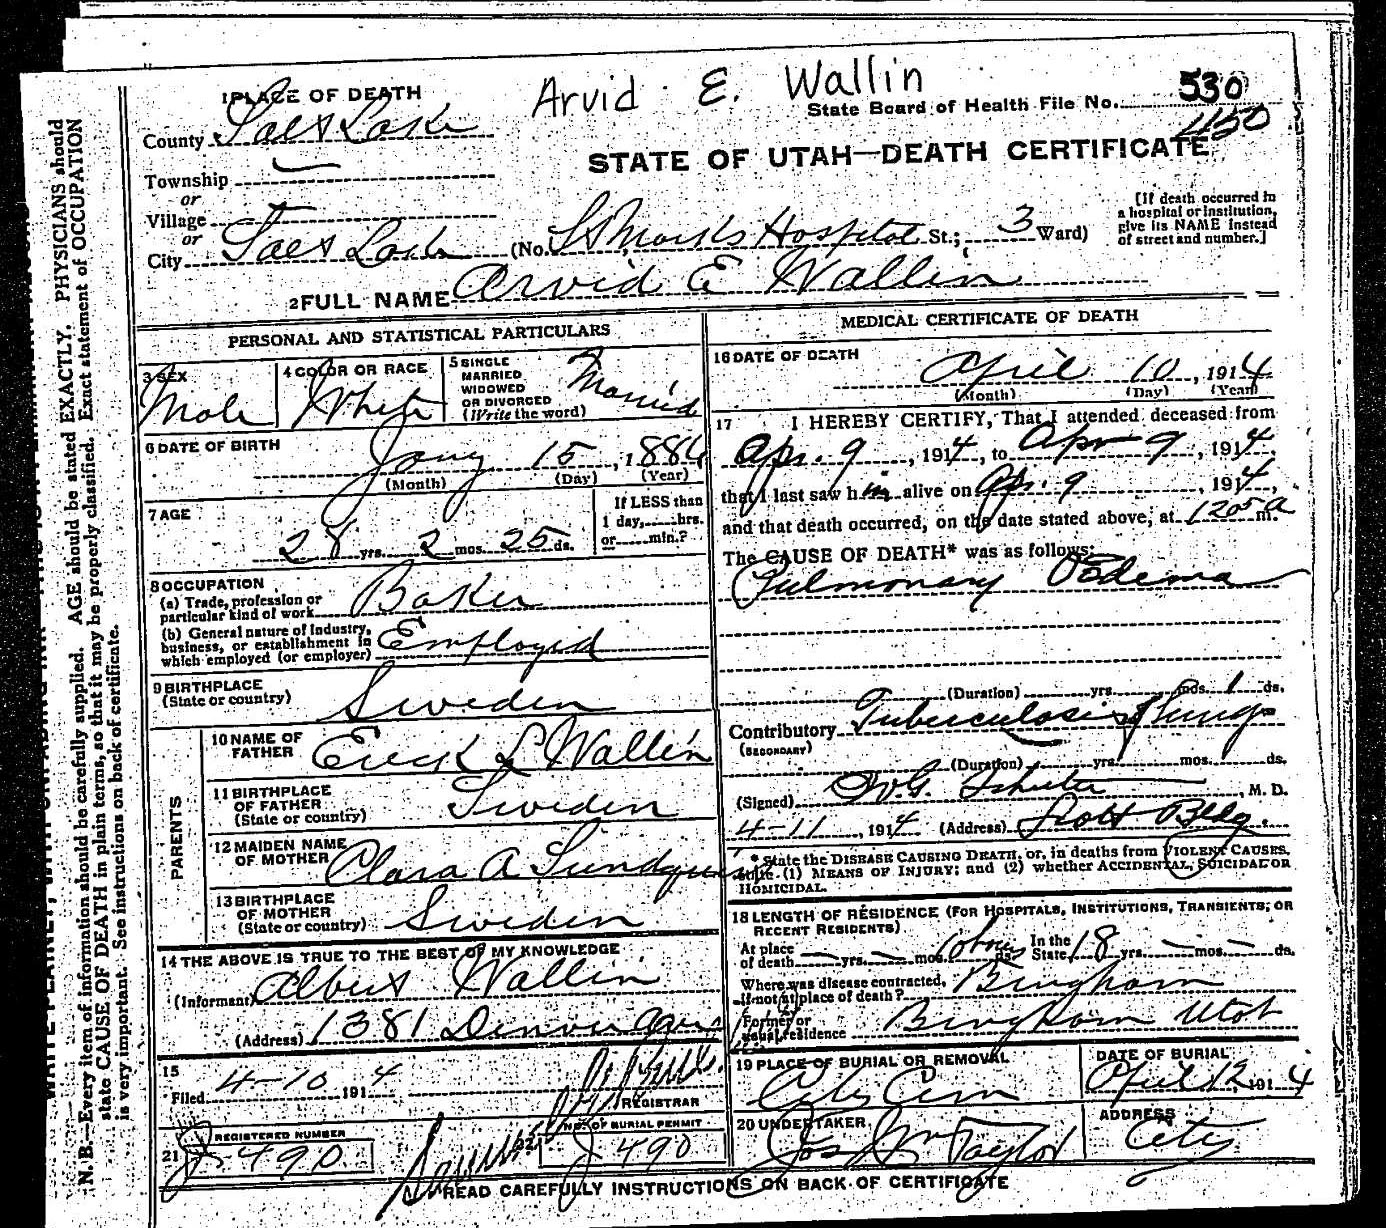 Arvid E. Wallin
1 PLACE OF DEATH
State Board of Health File No. 530
450
County Salt Lake
STATE OF UTAH—DEATH CERTIFICATE
Township
or
Village
or
City Salt Lake (No. St Marks Hospital St.; 3 Ward)
[If death occurred in
a hospital or institution,
give its NAME instead
of street and number.]
2 FULL NAME Arvid E Wallin
PERSONAL AND STATISTICAL PARTICULARS
3 SEX
Male
4 COLOR OR RACE
White
5 SINGLE
MARRIED
WIDOWED
OR DIVORCED
(Write the word)
Married
6 DATE OF BIRTH
Jany 15, 1886
(Month) (Day) (Year)
7 AGE
28 yrs. 2 mos. 25 ds.
If LESS than
1 day, hrs.
or min.?
8 OCCUPATION
(a) Trade, profession or
particular kind of work Baker
(b) General nature of industry,
business, or establishment in
which employed (or employer) Employed
9 BIRTHPLACE
(State or country) Sweden
PARENTS
10 NAME OF
FATHER Erick L Wallin
11 BIRTHPLACE
OF FATHER
(State or country) Sweden
12 MAIDEN NAME
OF MOTHER Clara A Sundquist
13 BIRTHPLACE
OF MOTHER
(State or country) Sweden
14 THE ABOVE IS TRUE TO THE BEST OF MY KNOWLEDGE
(Informant) Albert Wallin
(Address) 1381 Denver Ave
15
Filed 4-10 1914
REGISTRAR
21 REGISTERED NUMBER
490
22 No. OF BURIAL PERMIT
490
MEDICAL CERTIFICATE OF DEATH
16 DATE OF DEATH
April 10, 1914
(Month) (Day) (Year)
17 I HEREBY CERTIFY, That I attended deceased from
Apr. 9, 1914, to Apr 9, 1914,
that I last saw him alive on Apr. 9, 1914,
and that death occurred, on the date stated above, at 1205 a m.
The CAUSE OF DEATH* was as follows:
Pulmonary Oedema
(Duration) yrs. mos. 1 ds.
Contributory Tuberculosis of lungs
(SECONDARY)
(Duration) yrs. mos. ds.
(Signed) M. D.
4-11, 1914 (Address) Scott Bldg.
* State the DISEASE CAUSING DEATH, or, in deaths from VIOLENT CAUSES,
state (1) MEANS OF INJURY; and (2) whether ACCIDENTAL, SUICIDAL OR
HOMICIDAL.
18 LENGTH OF RESIDENCE (FOR HOSPITALS, INSTITUTIONS, TRANSIENTS, OR
RECENT RESIDENTS)
At place
of death yrs. mos. 10 hours ds. In the
State 18 yrs. mos. ds.
Where was disease contracted,
if not at place of death? Bingham
Former or
usual residence Bingham Utah
19 PLACE OF BURIAL OR REMOVAL
City Cem
DATE OF BURIAL
April 12, 1914
20 UNDERTAKER
Jos Wm Taylor
ADDRESS
City
READ CAREFULLY INSTRUCTIONS ON BACK OF CERTIFICATE
N. B.—Every item of information should be carefully supplied. AGE should be stated EXACTLY. PHYSICIANS should
state CAUSE OF DEATH in plain terms, so that it may be properly classified. Exact statement of OCCUPATION
is very important. See instructions on back of certificate.